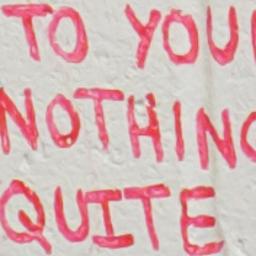 TO YOU
NOTHING
QUITE